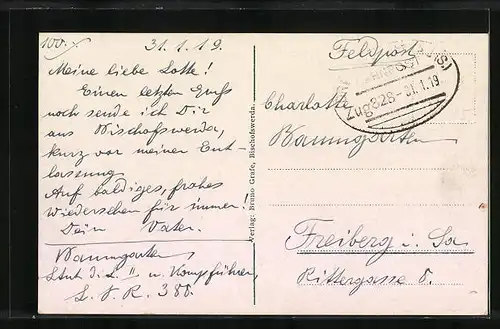 100.-
31.1.19.
Meine liebe Lotte!
Einen letzten Gruß
noch sende ich Dir
aus Bischofswerda,
kurz vor meiner Ent-
lassung.
Auf baldiges, frohes
Wiedersehen für immer!
Dein Vater.
Baumgarten,
Ltnt d. L. II u. Kompführer,
L. I. R. 388.
Verlag: Bruno Grafe, Bischofswerda.
Feldpost
Zug 828 - 31.1.19
Charlotte
Baumgarten
Freiberg i. Sa
Rittergasse 8.